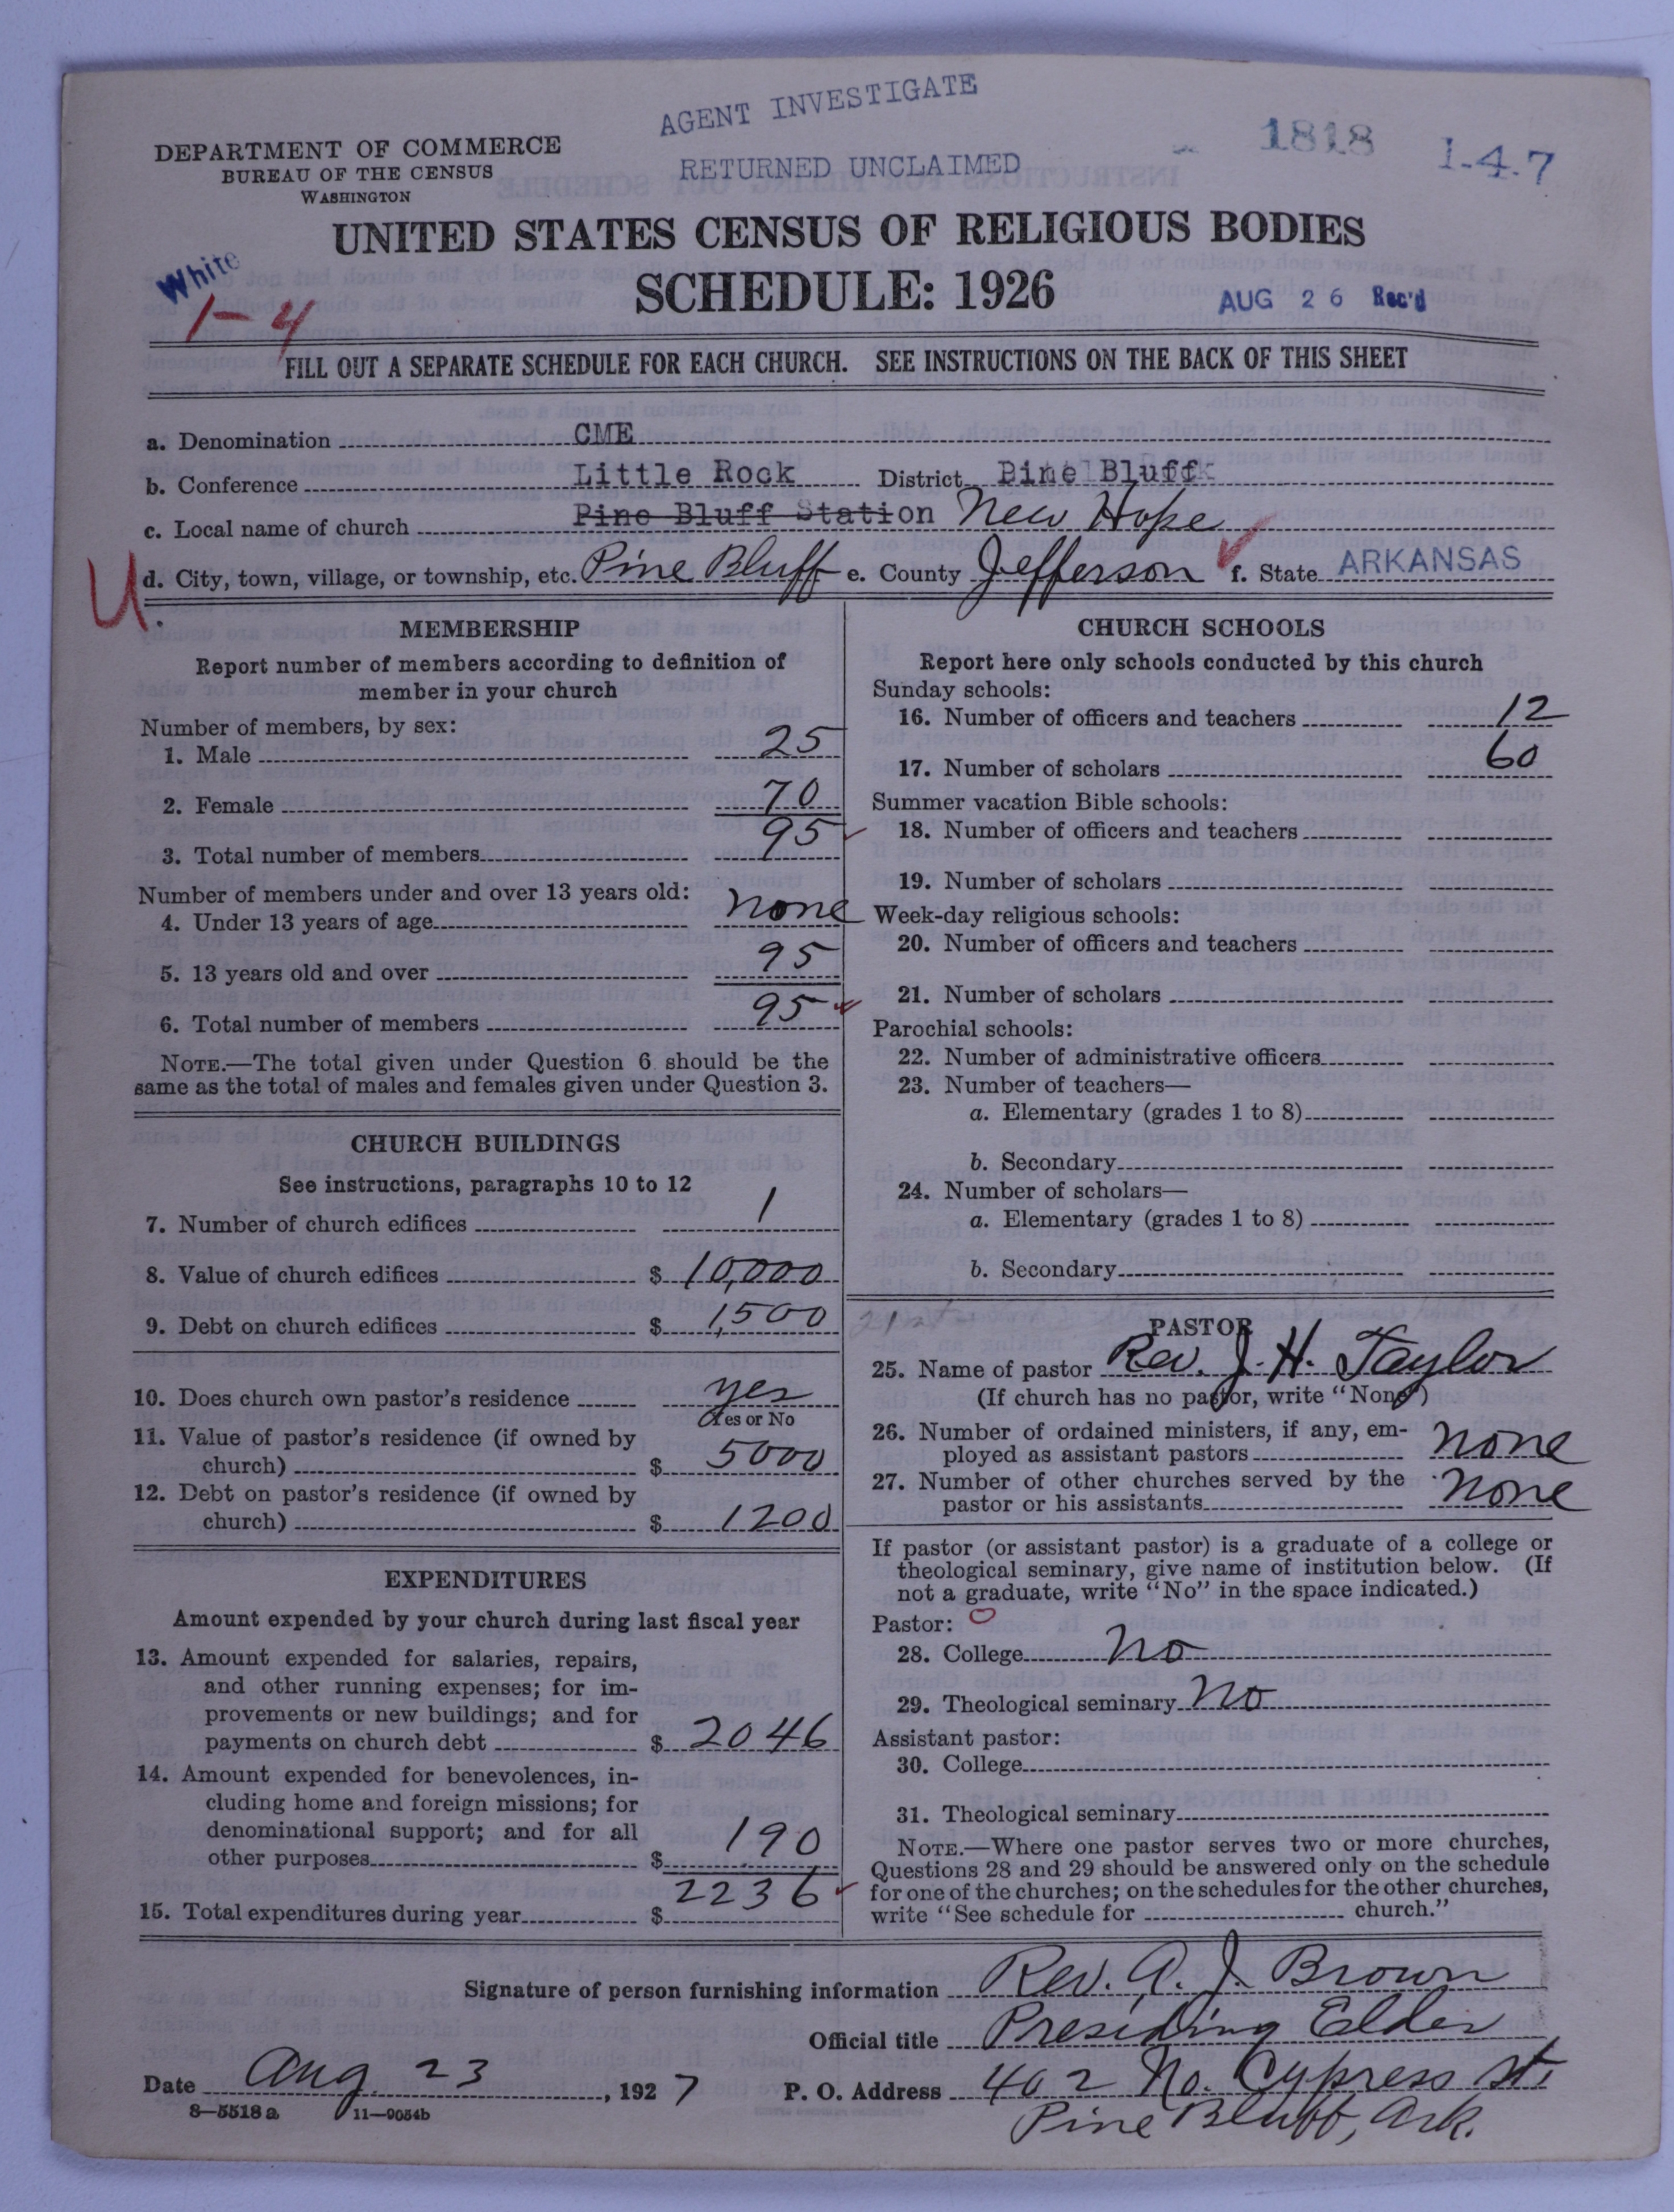 AGENT INVESTIGATE
RETURNED UNCLAIMED
1818 1-4-7
DEPARTMENT OF COMMERCE
BUREAU OF THE CENSUS
WASHINGTON
UNITED STATES CENSUS OF RELIGIOUS BODIES
SCHEDULE: 1926
White
1-4
AUG 26 Rec'd
FILL OUT A SEPARATE SCHEDULE FOR EACH CHURCH. SEE INSTRUCTIONS ON THE BACK OF THIS SHEET
a. Denomination CME
b. Conference Little Rock District Pine Bluff
c. Local name of church Pine Bluff Station New Hope
U d. City, town, village, or township, etc. Pine Bluff e. County Jefferson f. State ARKANSAS
MEMBERSHIP
Report number of members according to definition of
member in your church
Number of members, by sex:
1. Male 25
2. Female 70
3. Total number of members 95
Number of members under and over 13 years old:
4. Under 13 years of age none
5. 13 years old and over 95
6. Total number of members 95
NOTE.—The total given under Question 6 should be the
same as the total of males and females given under Question 3.
CHURCH BUILDINGS
See instructions, paragraphs 10 to 12
7. Number of church edifices 1
8. Value of church edifices $ 10,000
9. Debt on church edifices $ 1,500
10. Does church own pastor's residence yes
Yes or No
11. Value of pastor's residence (if owned by
church) $ 5000
12. Debt on pastor's residence (if owned by
church) $ 1200
EXPENDITURES
Amount expended by your church during last fiscal year
13. Amount expended for salaries, repairs,
and other running expenses; for im-
provements or new buildings; and for
payments on church debt $ 2046
14. Amount expended for benevolences, in-
cluding home and foreign missions; for
denominational support; and for all
other purposes $ 190
15. Total expenditures during year $ 2236
CHURCH SCHOOLS
Report here only schools conducted by this church
Sunday schools:
16. Number of officers and teachers 12
17. Number of scholars 60
Summer vacation Bible schools:
18. Number of officers and teachers
19. Number of scholars
Week-day religious schools:
20. Number of officers and teachers
21. Number of scholars
Parochial schools:
22. Number of administrative officers
23. Number of teachers—
a. Elementary (grades 1 to 8)
b. Secondary
24. Number of scholars—
a. Elementary (grades 1 to 8)
b. Secondary
PASTOR
25. Name of pastor Rev. J. H. Taylor
(If church has no pastor, write "None")
26. Number of ordained ministers, if any, em-
ployed as assistant pastors none
27. Number of other churches served by the
pastor or his assistants none
If pastor (or assistant pastor) is a graduate of a college or
theological seminary, give name of institution below. (If
not a graduate, write "No" in the space indicated.)
Pastor: 0
28. College No
29. Theological seminary No
Assistant pastor:
30. College
31. Theological seminary
NOTE.—Where one pastor serves two or more churches,
Questions 28 and 29 should be answered only on the schedule
for one of the churches; on the schedules for the other churches,
write "See schedule for church."
Signature of person furnishing information Rev. A. J. Brown
Official title Presiding Elder
Date Aug. 23, 1927 P. O. Address 402 No. Cypress St.
Pine Bluff, Ark.
8—5518a 11—9054b